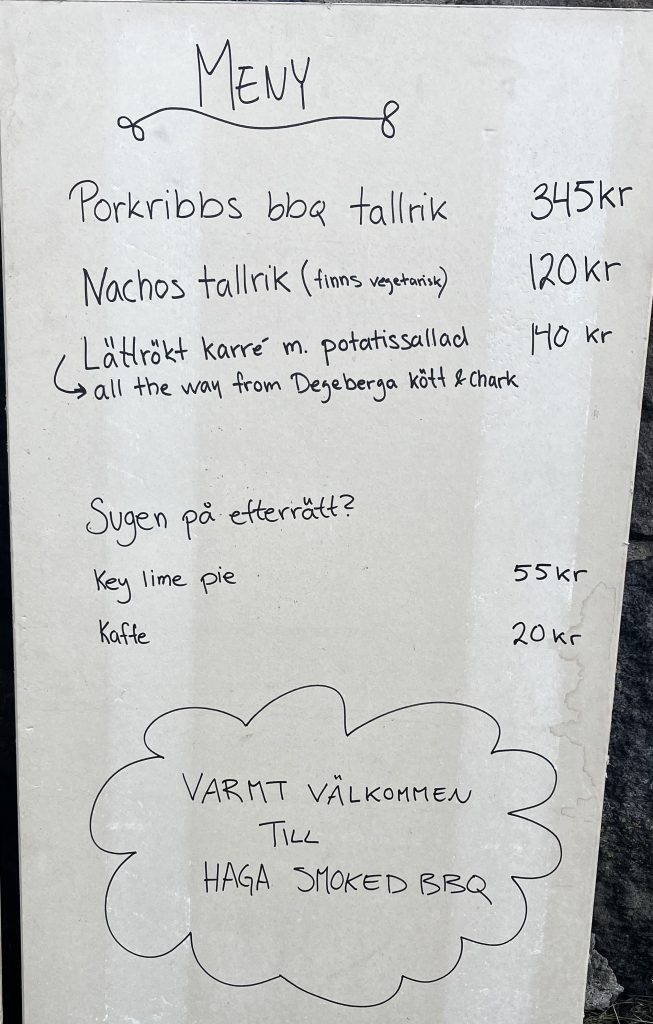 MENY
Porkribbs bbq tallrik 345kr
Nachos tallrik (finns vegetarisk) 120kr
Lättrökt karré m. potatissallad 140 kr
all the way from Degeberga kött & Chark
Sugen på efterrätt?
Key lime pie 55kr
Kaffe 20kr
VARMT VÄLKOMMEN
TILL
HAGA SMOKED BBQ